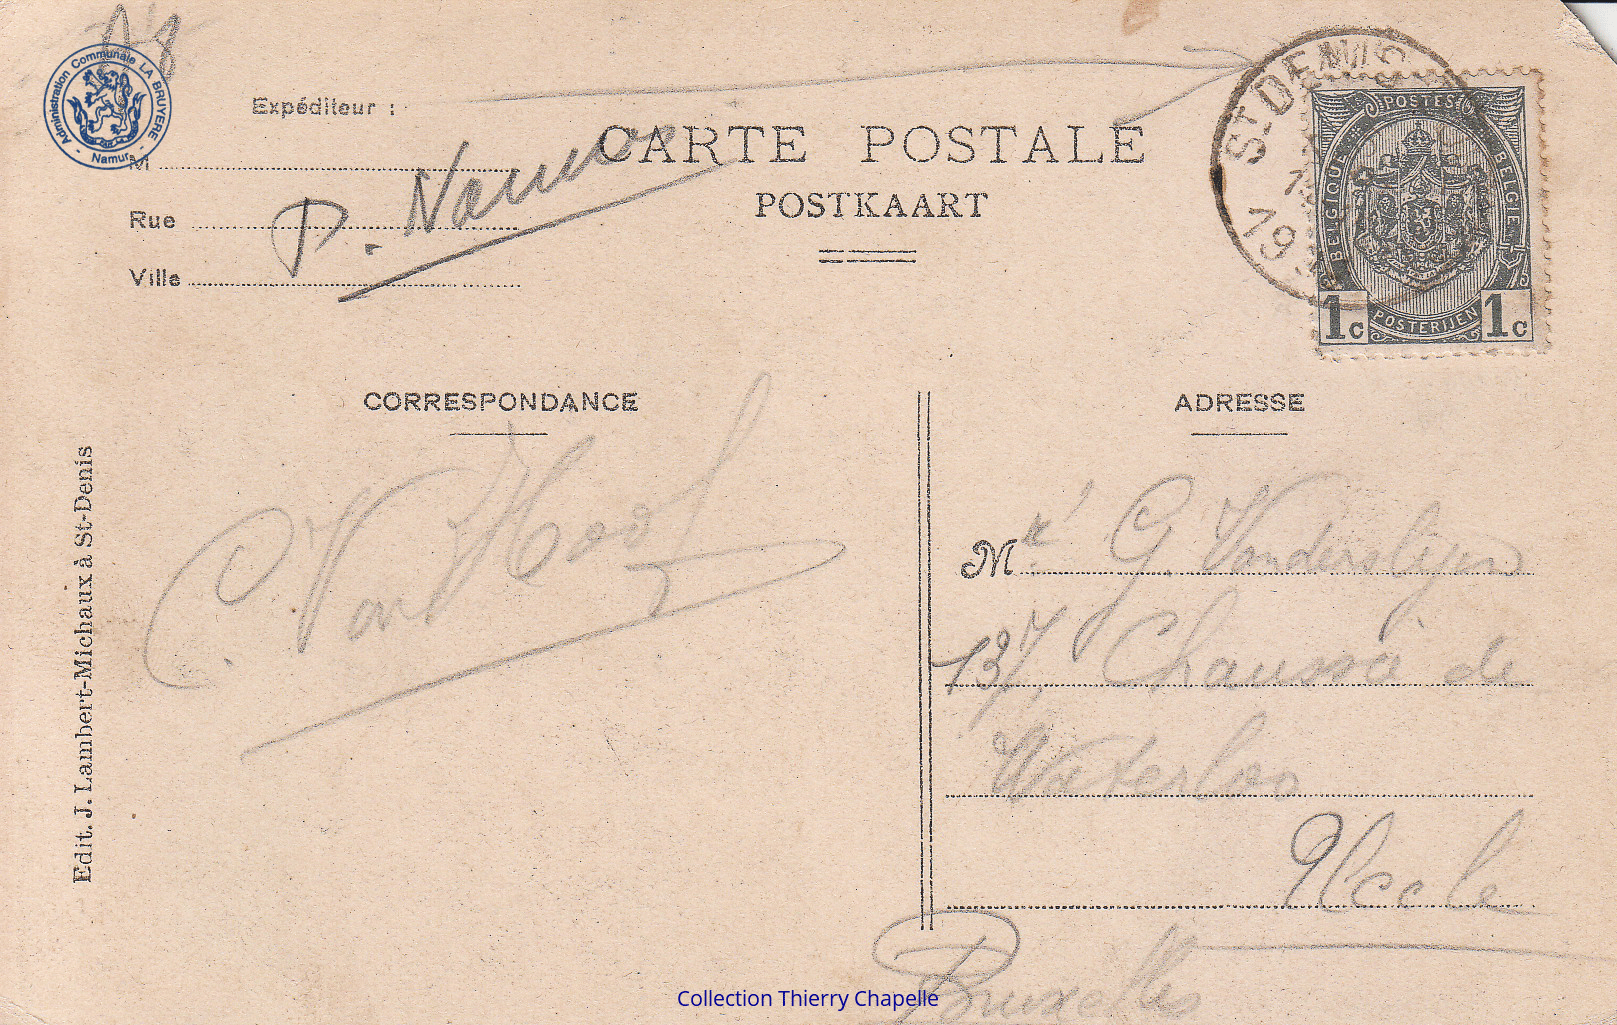 Administration Communale LA BRUYERE
- Namur -
Expéditeur :
CARTE POSTALE
POSTKAART
M
Rue
Ville
P. Namur
ST DENIS
POSTES
BELGIQUE
BELGIE
POSTERIJEN
1c 1c
CORRESPONDANCE
ADRESSE
C. Van Hoof
Mr G. Vanderslijen
137, Chaussée de
Waterloo
Uccle
Bruxelles
Edit. J. Lambert-Michaux à St-Denis
Collection Thierry Chapelle